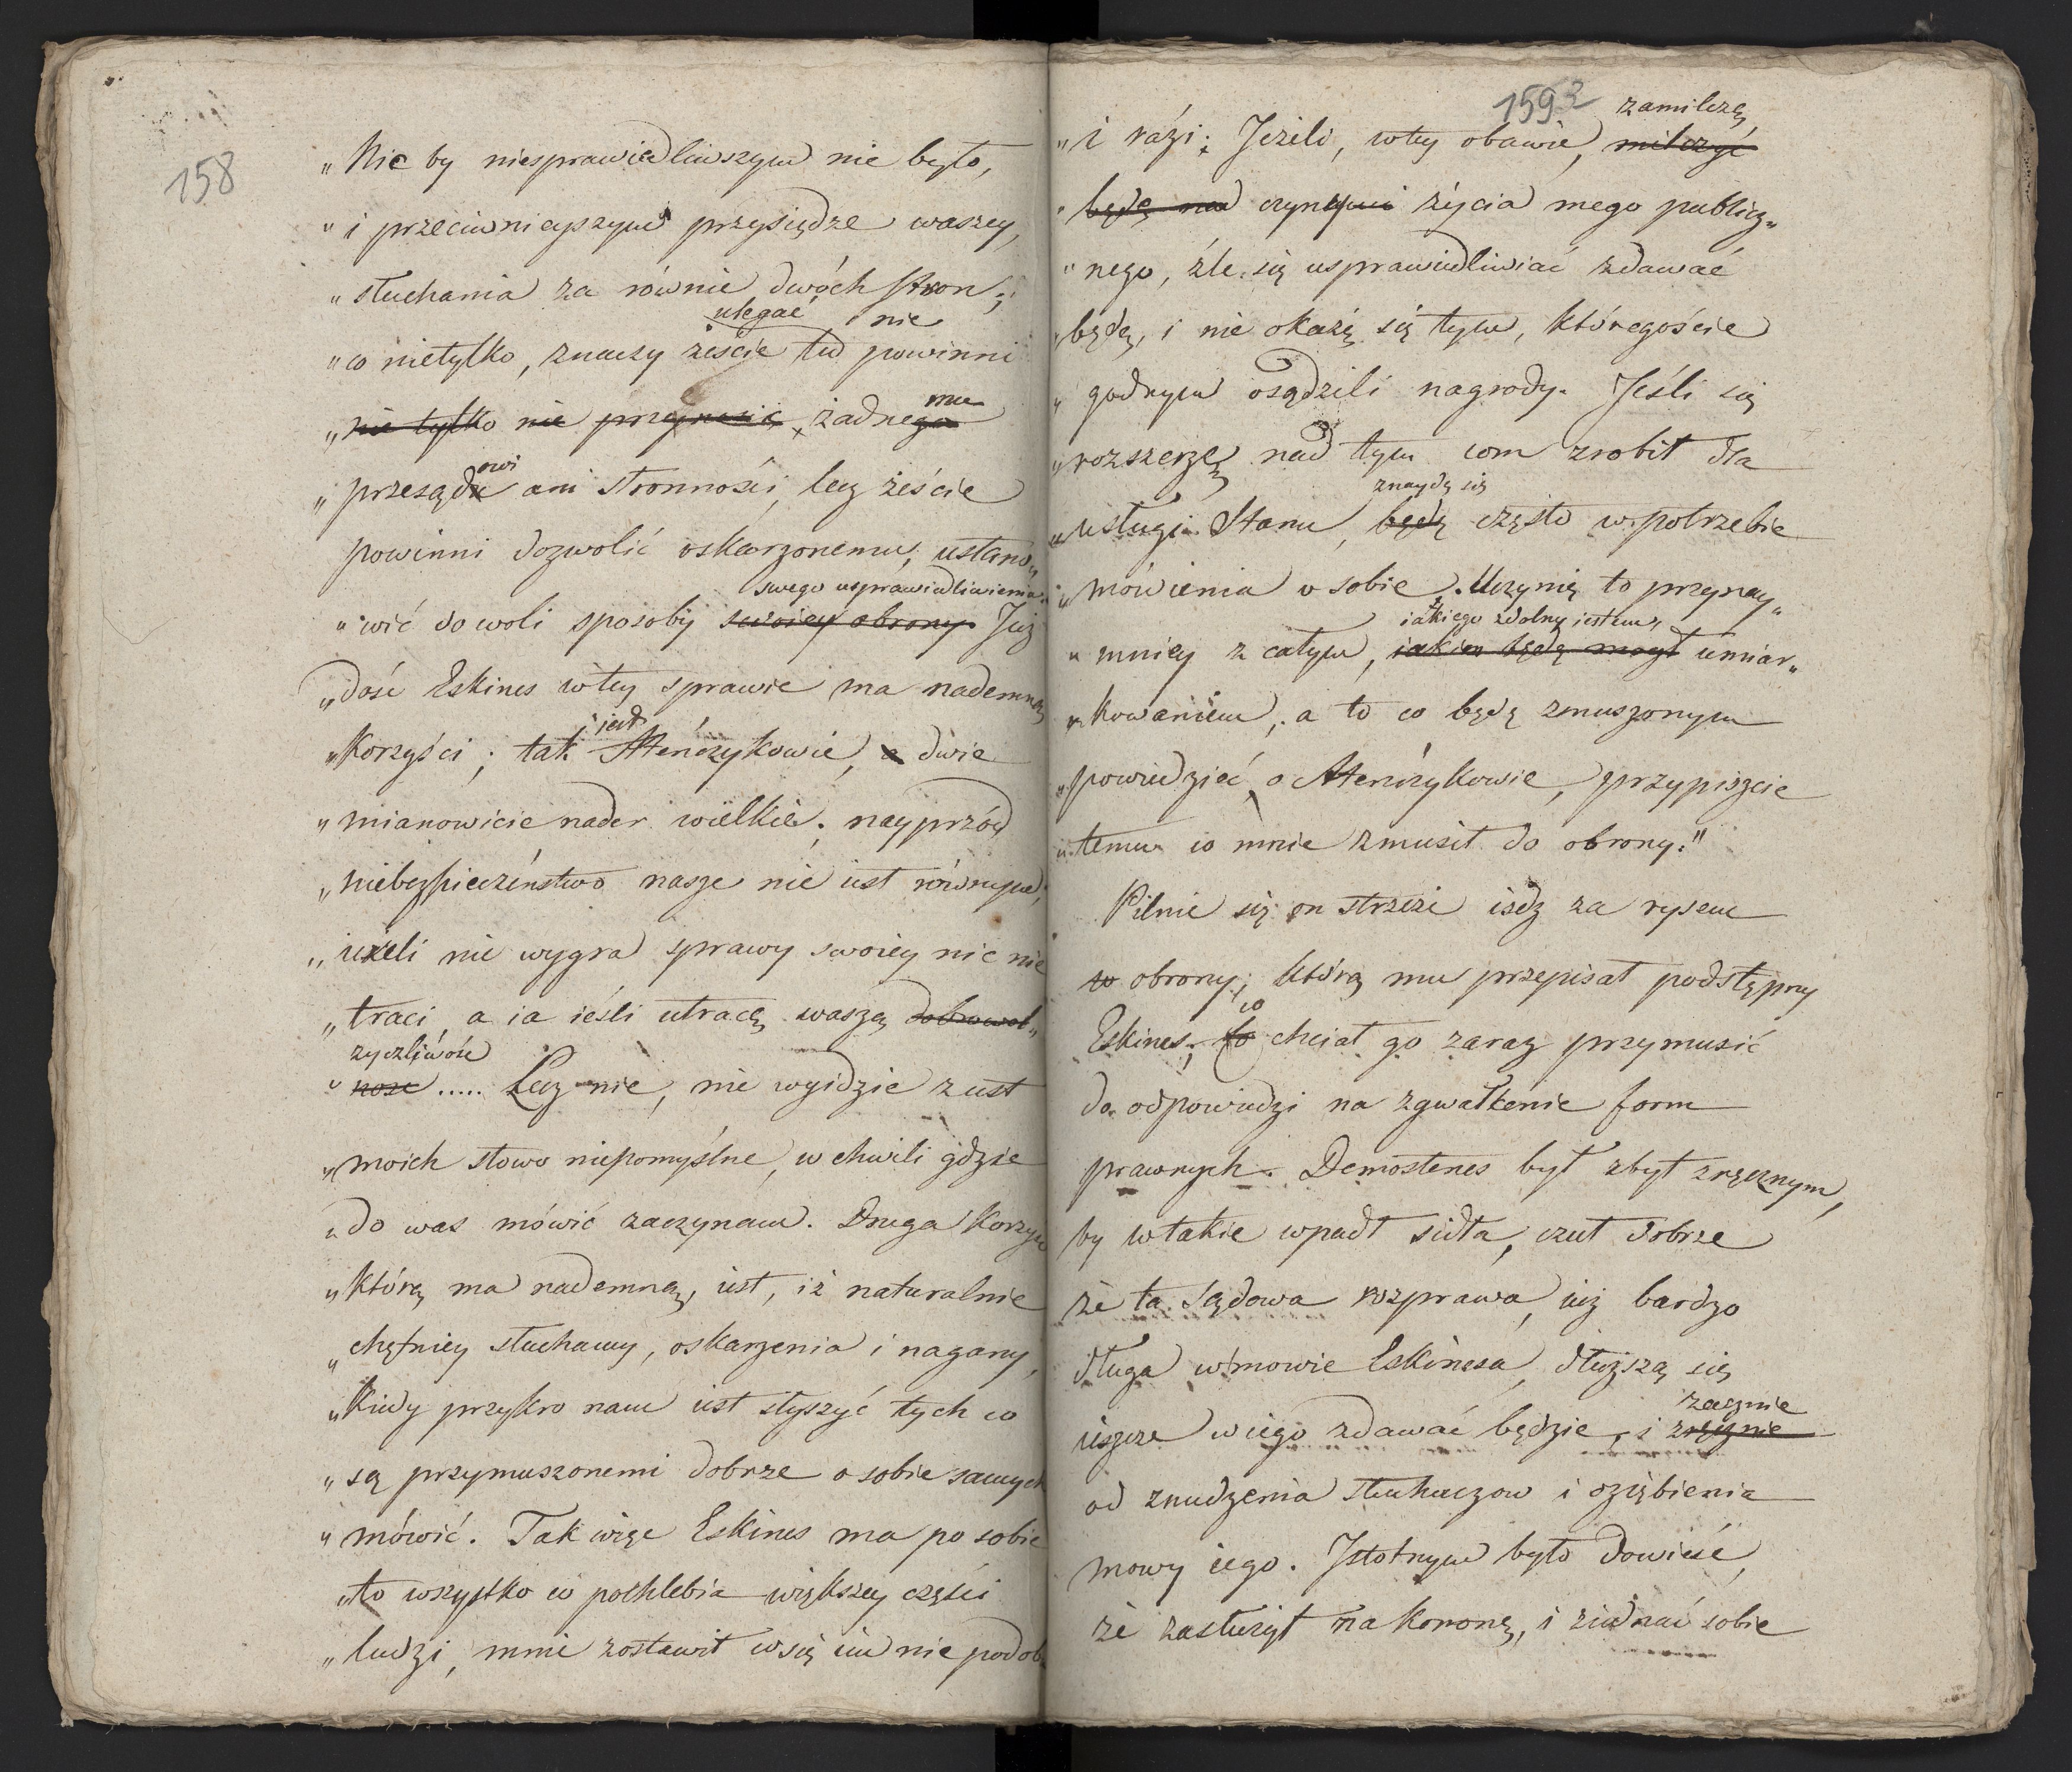 158
„Nic by niesprawiedliwszym nie było,
„i przeciwnieyszym przysiędze waszey,
„słuchania za równie dwóch stron;
ulegać nie
„co nietylko, znaczy żeście tu powinni
„nie tylko nie przynosić żadnego
mu
owi
„przesądu ani stronności, lecz żeście
powinni dozwolić oskarzonemu, ustano„
swego usprawiedliwienia.
„wić dowoli sposoby swoiey obrony. Już
„dość Eskines wtey sprawie ma nademną
jest
„Korzyści; tak Atenczykowie, a dwie
„mianowicie nader wielkie; nayprzód
„niebezpieczeństwo nasze nie iest równym;
„ieżeli nie wygra sprawy swoiey nic nie
„traci, a ia ieśli utracę waszą dobrowol„
zyczliwość
„ność ..... Lecz nie, nie wyidzie z ust
„moich słowo niepomyślne, w chwili gdzie
„do was mówić zaczynam. Druga Korzyść
„którą ma nademną, iest, iż naturalnie
„chętniey słuchamy, oskarzenia i nagany,
„Kiedy przykro nam iest słyszyć tych co
„są przymuszonemi dobrze o sobie samych
„mówić. Tak więc Eskines ma po sobie
„to wszystko co pochlebia większey części
„ludzi, mnie zostawił co się im nie podob
1592
„i razi; Jeżeli, wtey obawie, milczyć
zamilczę
„będę nad czynami życia mego publicz„
„nego, źle się usprawiedliwiać zdawać
„będę, i nie okażę się tym, któregoście
„godnym osądzili nagrody. Jeśli się
„rozszerzę nad tym com zrobił dla
znaydę się
„usługi Stanu, będę często w potrzebie
„mówienia o sobie. Uczynię to przynay„
iakiego zdolny iestem,
„mniey z całym, iakim będę mogł umiar„
„kowaniem, a to co będę zmuszonym
„powiedzieć, o Atenczykowie, przypiszcie
„temu co mnie zmusił do obrony."
Pilnie się on strzeże iśdz za rysem
w obrony, którą mu przepisał podstępny
co
Eskines, to chciał go zaraz przymusić
do odpowiedzi na zgwałcenie form
prawnych. Demostenes był zbyt zręcznym,
by w takie wpadł sidła, czuł dobrze
że ta sądowa rozprawa, iuż bardzo
długa w mowie Eskinesa, dłuższą się
ieszcze w iego zdawać będzie, i zręcznie
zacznie
od znudzenia słuchaczow i oziębienia
mowy iego. Istotnym było dowieść,
że zasłużył na Koronę, i ziednać sobie